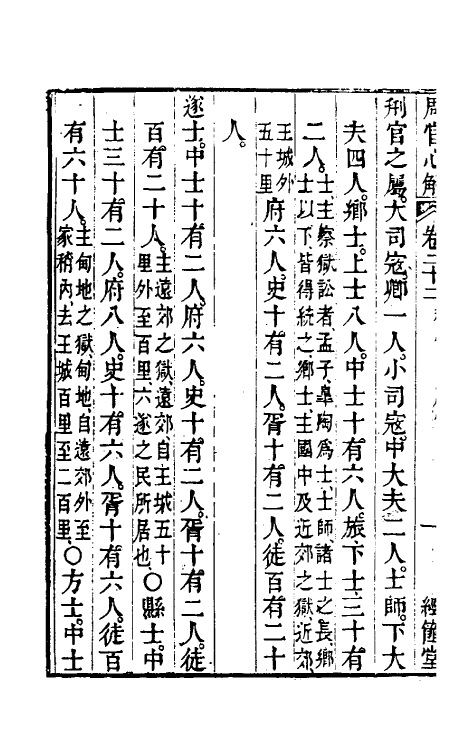 周官心解 卷二十二 一 經 堂
刑官之屬。大司寇。卿一人。小司寇。中大夫二人。士師。下大
夫四人。鄉士。上士八人。中士十有六人。旅。下士三十有
二人。士主察獄訟者、孟子、皋陶爲士、士師、諸士之長、鄉
士以下皆得統之鄉士、主國中及近郊之獄、近郊、
王城外
五十里
府六人。史十有二人。胥十有二人。徒百有二十
人。
遂士。中士十有二人。府六人。史十有二人。胥十有二人。徒
百有二十人。主遠郊之獄、遠郊、自王城五十
里外至百里、六遂之民所居也、○縣士。中
士三十有二人。府八人。史十有六人。胥十有六人。徒百
有六十人。主甸地之獄、甸地、自遠郊外至
家稍內去王城百里至二百里、○方士。中士